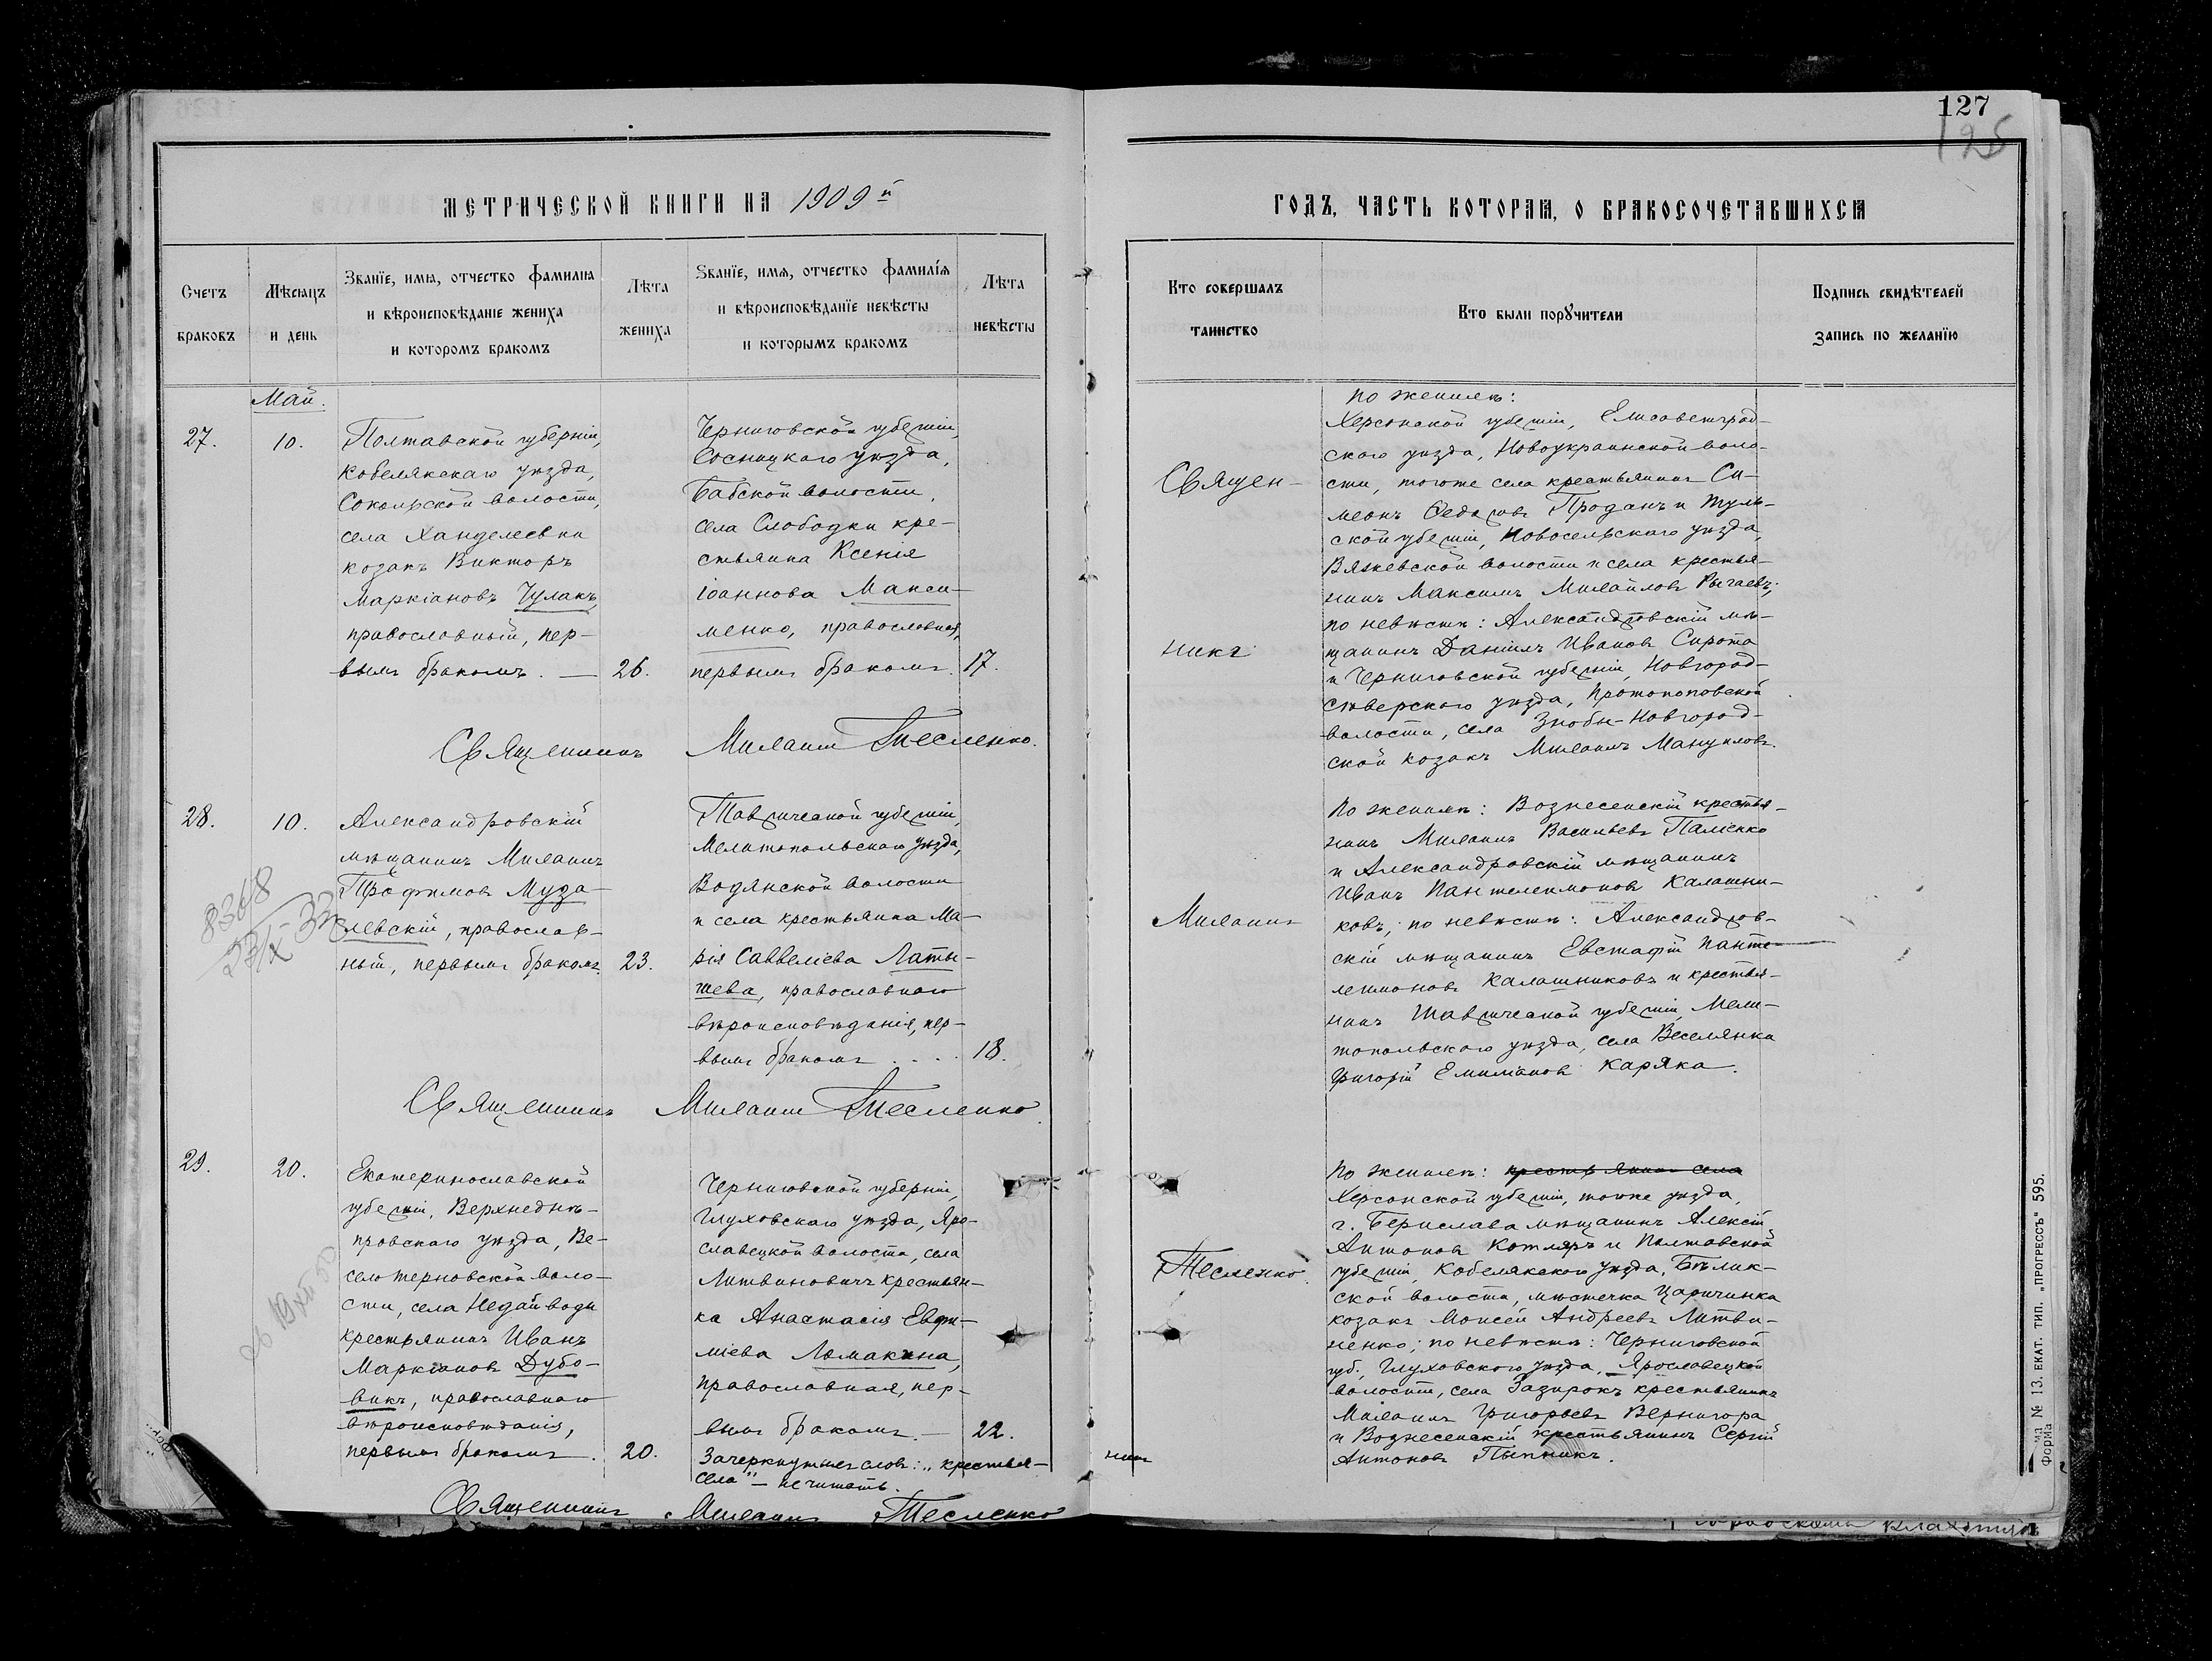 127
125
МЕТРИЧЕСКОЙ КНИГИ НА 1909й
ГОДЪ, ЧАСТЬ ВТОРАЯ, О БРАКОСОЧЕТАВШИХСЯ
Счетъ
браковъ
Мѣсяцъ
и день
Званїе, имя, отчество фамилия
и вѣроисповѣданїе жениха
и которомъ бракомъ
Лѣта
жениха
Званїе, имя, отчество фамилїя
и вѣроисповѣданїе невѣсты
и которымъ бракомъ
Лѣта
невѣсты
Кто совершалъ
таинство
Кто были порꙋчители
Подпись свидѣтелей
запись по желанїю
Май.
27.
10.
Полтавской губерніи,
Кобелякскаго уѣзда,
Сокольской волости,
села Ханделеевки
козакъ Викторъ
Маркіановъ Чулакъ,
православный, пер-
вымъ бракомъ. —
26.
Черниговской губерніи,
Сосницкаго уѣзда,
Бабской волости,
села Слободки кре-
стьянка Ксенія
Іоаннова Макси-
менко, православная,
первымъ бракомъ.
17.
Священникъ Михаилъ Тесленко.
Священ-
никъ
по женихѣ:
Херсонской губерніи, Елисаветград-
скаго уѣзда, Новоукраинской воло-
сти, тогоже села крестьянинъ Си-
меонъ Федоровъ Проданъ и Туль-
ской губерніи, Новосельскаго уѣзда,
Вяжевской волости и села крестья-
нинъ Максимъ Михайловъ Рычаевъ;
по невѣстѣ: Александровскій мѣ-
щанинъ Даніилъ Ивановъ Сирота
и Черниговской губерніи, Новгород-
сѣверскаго уѣзда, Протопоповской
волости, села Знобъ-Новгород-
ской козакъ Михаилъ Мануиловъ.
28.
10.
Александровскій
мѣщанинъ Михаилъ
Трофимовъ Муза-
левскій, православ-
ный, первымъ бракомъ.
23.
Таврической губерніи,
Мелитопольскаго уѣзда,
Водянской волости
и села крестьянка Ма-
рія Саввеліева Латы-
шева, православнаго
вѣроисповѣданія, пер-
вымъ бракомъ . . . .
18.
Священникъ Михаилъ Тесленко
Михаилъ
По женихѣ: Вознесенскій крестья-
нинъ Михаилъ Васильевъ Паліенко
и Александровскій мѣщанинъ
Иванъ Пантелеимоновъ Калашни-
ковъ; по невѣстѣ: Александров-
скій мѣщанинъ Евстафій Панте-
леимоновъ Калашниковъ и крестья-
нинъ Таврической губерніи, Мели-
топольскаго уѣзда, села Веселянка
Григорій Емиліановъ Каряка.
29.
20.
Екатеринославской
губерніи, Верхнеднѣ-
провскаго уѣзда, Ве-
селотерновской воло-
сти, села Недайвода
крестьянинъ Иванъ
Маркіановъ Дубо-
викъ, православнаго
вѣроисповѣданія,
первымъ бракомъ.
20.
Черниговской губерніи,
Глуховскаго уѣзда, Яро-
славецкой волости, села
Литвиновичъ крестьян-
ка Анастасія Евфи-
міева Ломакина,
православная, пер-
вымъ бракомъ. —
22.
Зачеркнутыхъ словъ: „крестья-
нинъ
села" — не читать.
Священникъ Михаилъ Тесленко
Тесленко.
По женихѣ: крестьянинъ села
Херсонской губерніи, тогоже уѣзда,
г. Берислава мѣщанинъ Алексій
Антоновъ Котляръ и Полтавской
губерніи, Кобелякскаго уѣзда, Бѣлик-
ской волости, мѣстечка Царичинка
козакъ Моисей Андреевъ Литви-
ненко; по невѣстѣ: Черниговской
губ., Глуховскаго уѣзда, Ярославецкой
волости, села Зазирокъ крестьянинъ
Михаилъ Григорьевъ Вернигора
и Вознесенскій крестьянинъ Сергій
Антоновъ Пытникъ.
Форма № 13. ЕКАТ. ТИП. „ПРОГРЕССЪ" 595.